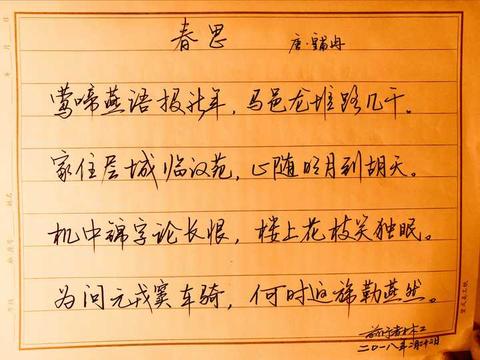 春思 唐·皇甫冉
莺啼燕语报新年，马邑龙堆路几千。
家住层城临汉苑，心随明月到胡天。
机中锦字论长恨，楼上花枝笑独眠。
为问元戎窦车骑，何时返旆勒燕然。
二〇一八年